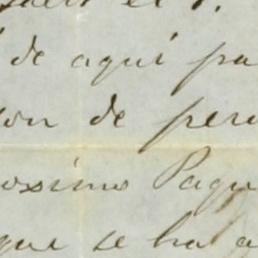 de aqui pa
on de per
osimo Paqu
que se ha a